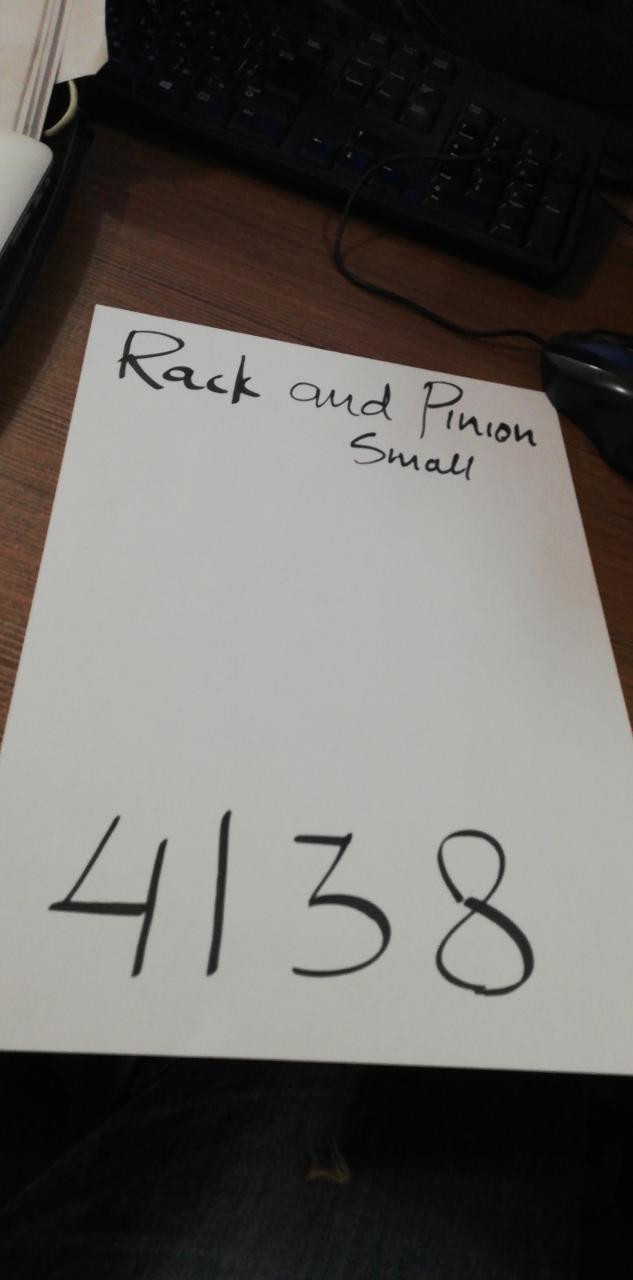 Rack and Pinion
Small
4138